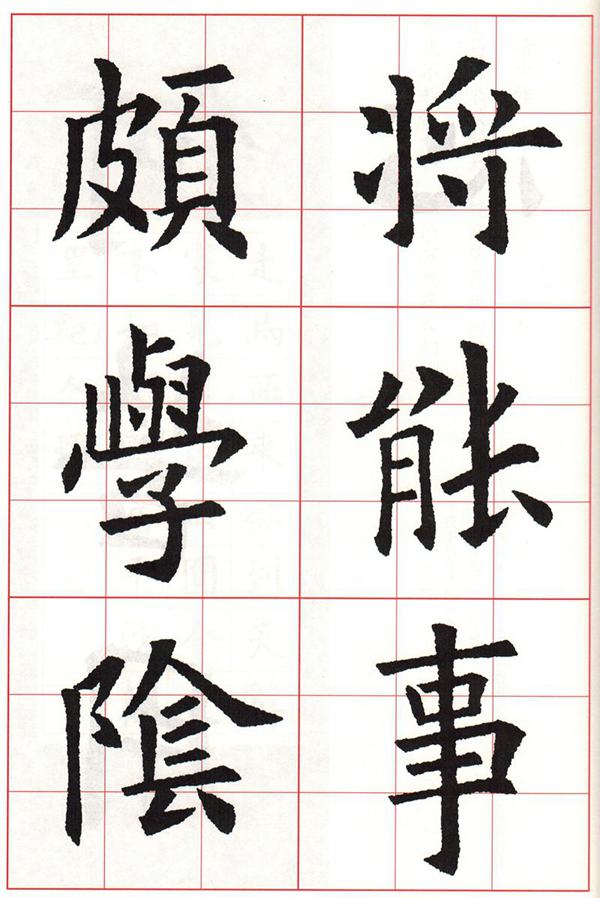 将能事
頗學陰